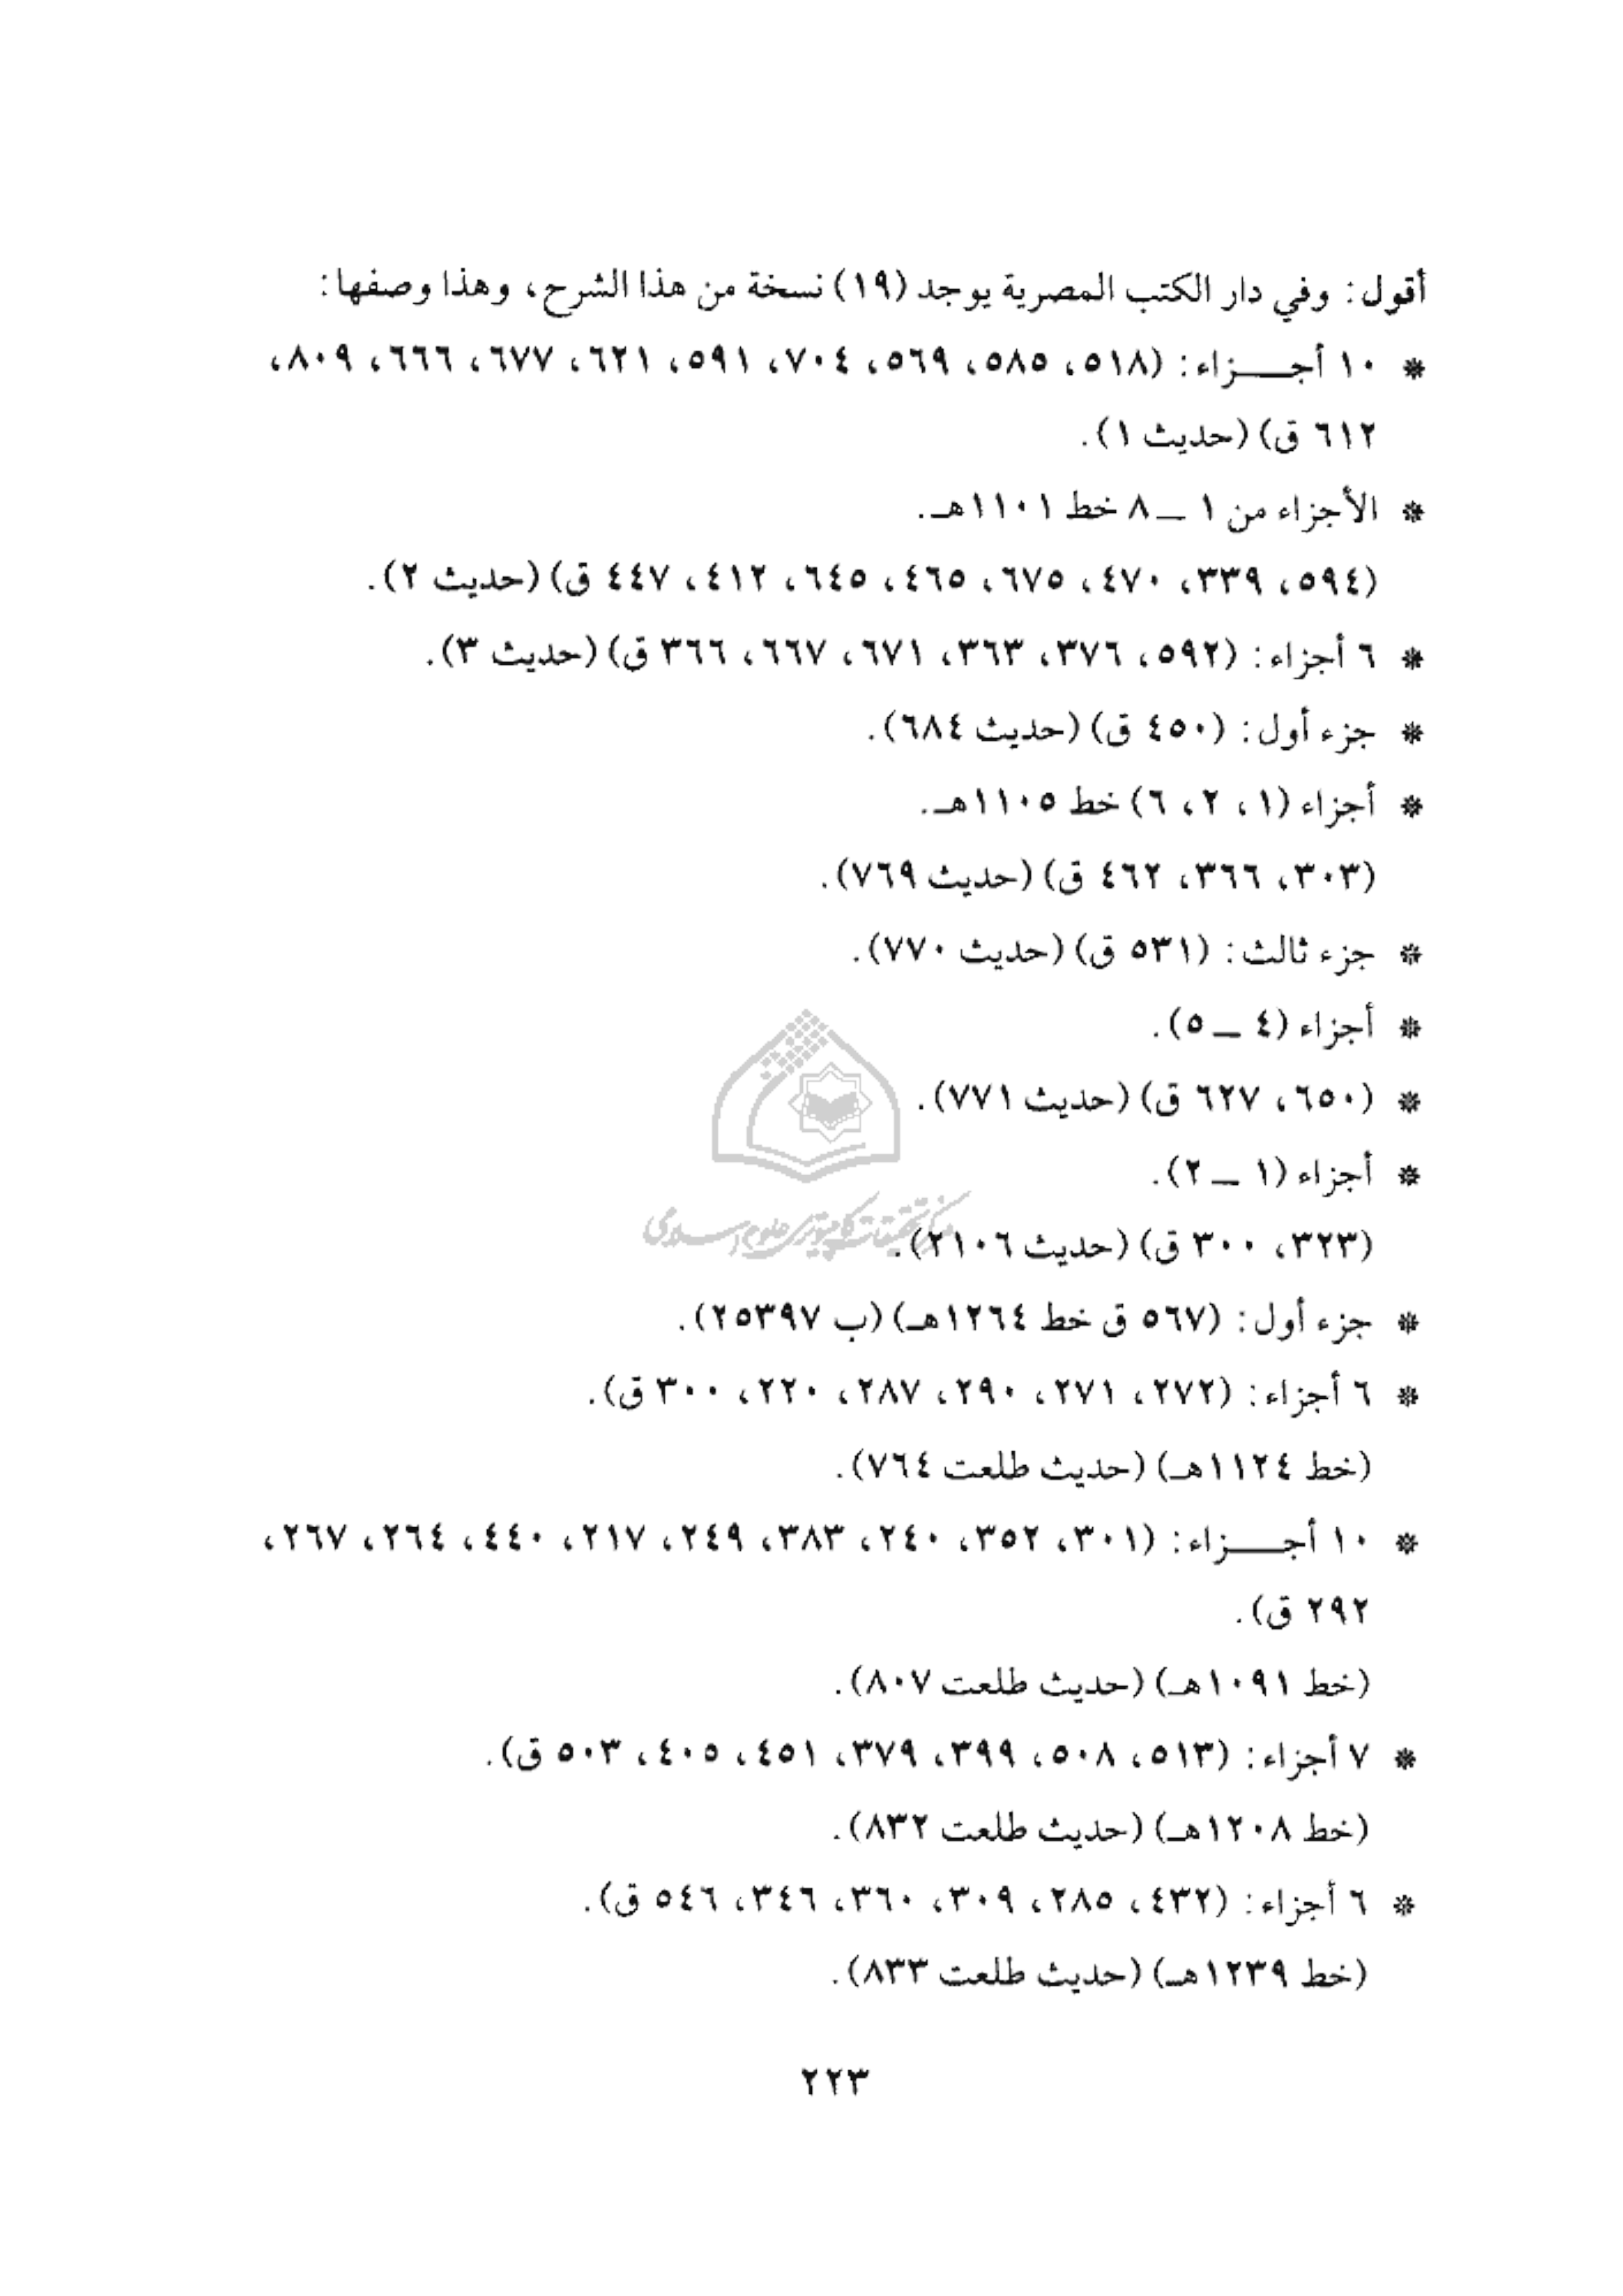 أقول: وفي دار الكتب المصرية يوجد (١٩) نسخة من هذا الشرح، وهذا وصفها:
* ١٠ أجـــزاء: (٥١٨، ٥٨٥، ٥٦٩، ٧٠٤، ٥٩١، ٦٢١، ٦٧٧، ٦٦٦، ٨٠٩،
٦١٢ ق) (حديث ١).
* الأجزاء من ١ ــ ٨ خط ١١٠١هـ.
(٥٩٤، ٣٣٩، ٤٧٠، ٦٧٥، ٤٦٥، ٦٤٥، ٤١٢، ٤٤٧ ق) (حديث ٢).
* ٦ أجزاء: (٥٩٢، ٣٧٦، ٣٦٣، ٦٧١، ٦٦٧، ٣٦٦ ق) (حديث ٣).
* جزء أول: (٤٥٠ ق) (حديث ٦٨٤).
* أجزاء (١، ٢، ٦) خط ١١٠٥هـ.
(٣٠٣، ٣٦٦، ٤٦٢ ق) (حديث ٧٦٩).
* جزء ثالث: (٥٣١ ق) (حديث ٧٧٠).
* أجزاء (٤ ــ ٥).
* (٦٥٠، ٦٢٧ ق) (حديث ٧٧١).
* أجزاء (١ ــ ٢).
مركز تحقيقات كامپيوتری علوم اسلامی
(٣٢٣، ٣٠٠ ق) (حديث ٢١٠٦).
* جزء أول: (٥٦٧ ق خط ١٢٦٤هـ) (ب ٢٥٣٩٧).
* ٦ أجزاء: (٢٧٢، ٢٧١، ٢٩٠، ٢٨٧، ٢٢٠، ٣٠٠ ق).
(خط ١١٢٤هـ) (حديث طلعت ٧٦٤).
* ١٠ أجـــزاء: (٣٠١، ٣٥٢، ٢٤٠، ٣٨٣، ٢٤٩، ٢١٧، ٤٤٠، ٢٦٤، ٢٦٧،
٢٩٢ ق).
(خط ١٠٩١هـ) (حديث طلعت ٨٠٧).
* ٧ أجزاء: (٥١٣، ٥٠٨، ٣٩٩، ٣٧٩، ٤٥١، ٤٠٥، ٥٠٣ ق).
(خط ١٢٠٨هـ) (حديث طلعت ٨٣٢).
* ٦ أجزاء: (٤٣٢، ٢٨٥، ٣٠٩، ٣٦٠، ٣٤٦، ٥٤٦ ق).
(خط ١٢٣٩هـ) (حديث طلعت ٨٣٣).
٢٢٣